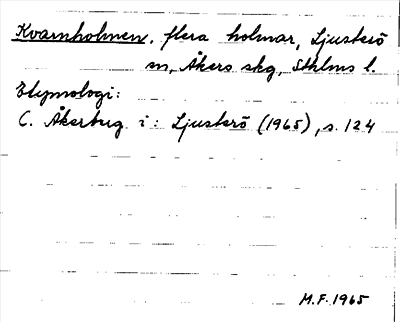 Kvarnholmen, flera holmar, Ljusterö
sn, Åkers skg, Sthlms l.
Etymologi:
C. Åkerberg i: Ljusterö (1965), s. 124
M.F. 1965